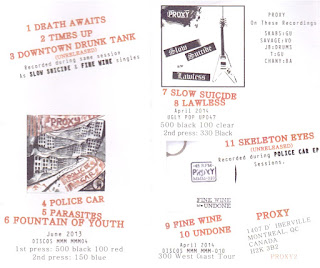 1 DEATH AWAITS
2 TIMES UP
3 DOWNTOWN DRUNK TANK
(UNRELEASED)
Recorded during same session
as SLOW SUICIDE & FINE WINE singles
PROXY
4 POLICE CAR
5 PARASITES
6 FOUNTAIN OF YOUTH
June 2013
DISCOS MMM MMM04
1st press: 500 black 100 red
2nd press: 150 blue
PROXY
Slow
Suicide
Lawless
7 SLOW SUICIDE
8 LAWLESS
April 2014
UGLY POP UP047
500 black 100 clear
2nd press: 330 Black
PROXY
FINE WINE
UNDONE
9 FINE WINE
10 UNDONE
April 2014
DISCOS MMM MMM-010
300 West Coast Tour
PROXY
On These Recordings
SHABS:GU
SAVAGE:VO
JB:DRUMS
T:GU
CHANT:BA
11 SKELETON EYES
(UNRELEASED)
Recorded during POLICE CAR EP
Sessions.
PROXY
1407 D' IBERVILLE
MONTREAL, QC
CANADA
H2K 3B2
PROXY2